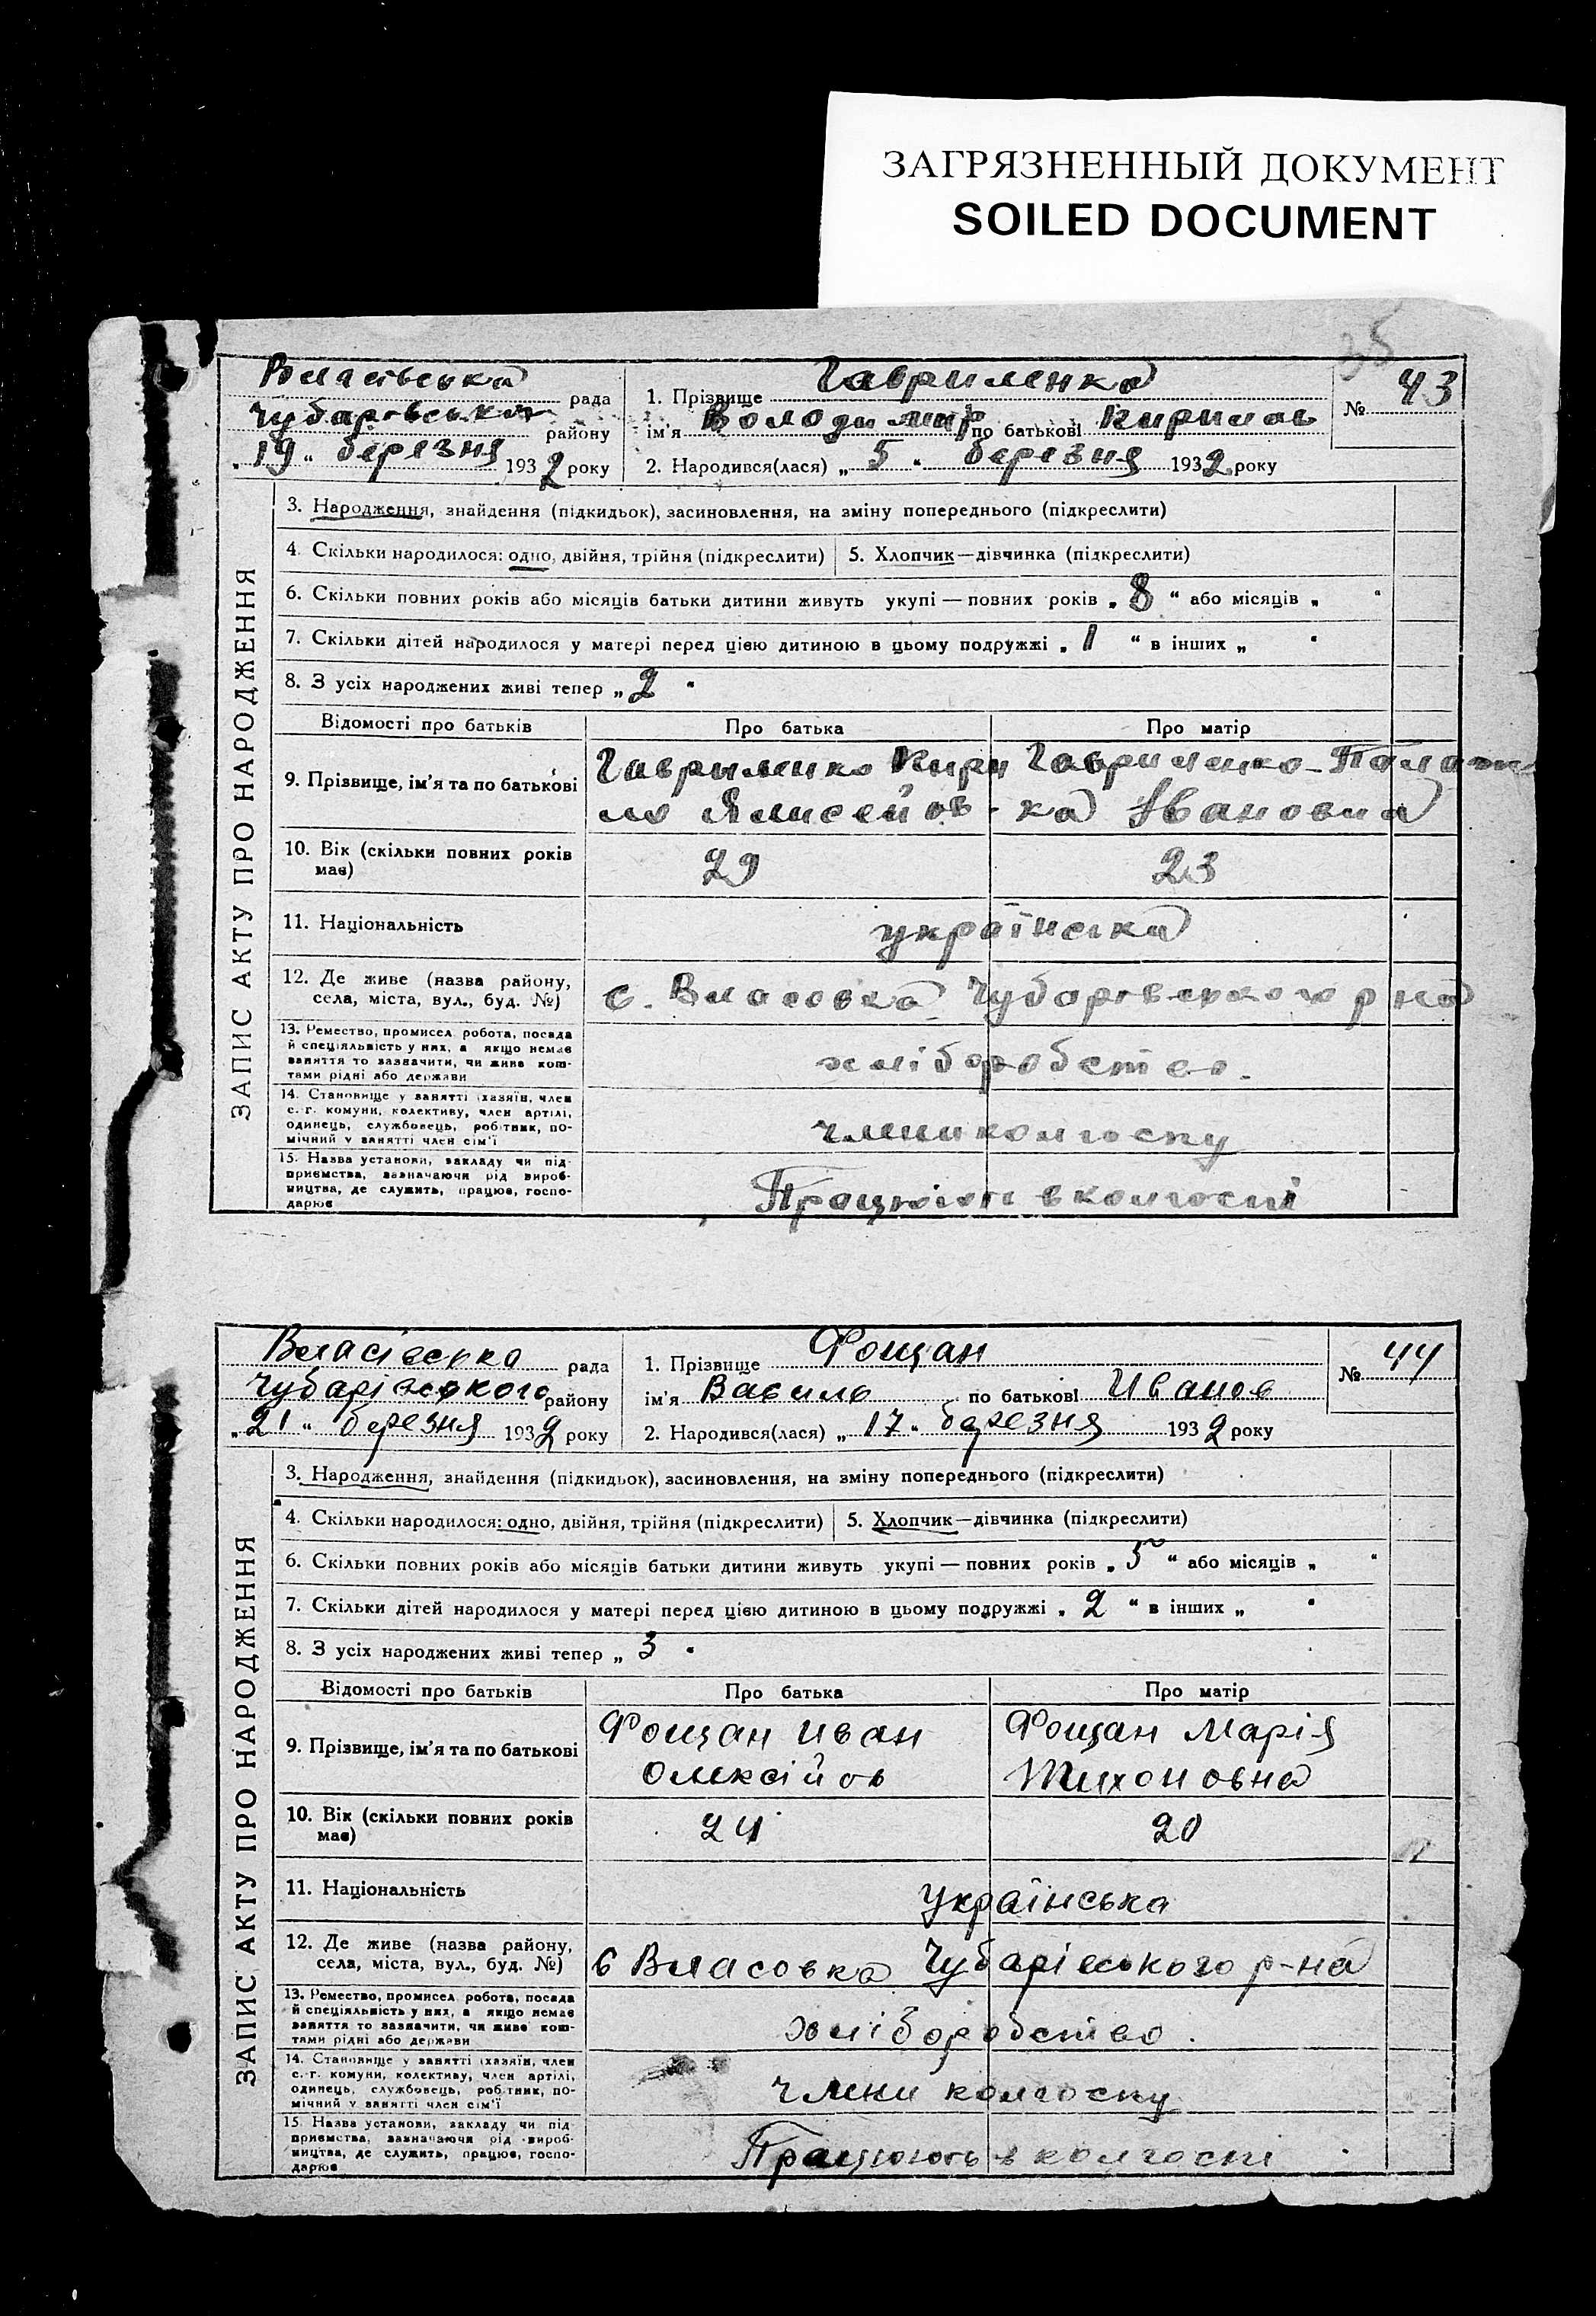 ЗАГРЯЗНЕННЫЙ ДОКУМЕНТ
SOILED DOCUMENT
35
Власівська рада
Чубарівська району
„19“ березня 1932 року
1. Прізвище Гавриленко
ім'я Володимир по батькові Кирилов
№ 43
2. Народився(лася) „5“ березня 1932 року
ЗАПИС АКТУ ПРО НАРОДЖЕННЯ
3. Народження, знайдення (підкидьок), засиновлення, на зміну попереднього (підкреслити)
4. Скільки народилося: одно, двійня, трійня (підкреслити) 5. Хлопчик—дівчинка (підкреслити)
6. Скільки повних років або місяців батьки дитини живуть укупі — повних років „8“ або місяців „ “
7. Скільки дітей народилося у матері перед цією дитиною в цьому подружжі „1“ в інших „ “
8. З усіх народжених живі тепер „2“
Відомості про батьків Про батька Про матір
9. Прізвище, ім'я та по батькові
Гавриленко Кири Гавриленко Палаж
ло Ялисейов ка Івановна
10. Вік (скільки повних років
має) 29 23
11. Національність українська
12. Де живе (назва району,
села, міста, вул., буд. №) с. Власовка Чубаровського р на
13. Ремество, промисел робота, посада
й спеціяльність у них, а якщо немає
заняття то зазначити, чи живе кош-
тами рідні або держави
хліборобство.
14. Становище у занятті (хазяїн, член
с.-г. комуни, колективу, член артілі,
одинець, службовець, робітник, по-
мічний у занятті член сім'ї
члени колгоспу
15. Назва установи, закладу чи під-
приємства, зазначаючи рід вироб-
ництва, де служить, працює, госпо-
дарює
Працюють в колгоспі
Власівська рада
Чубарівського району
„21“ березня 1932 року
1. Прізвище Фощан
ім'я Василь по батькові Иванов
№ 44
2. Народився(лася) „17“ березня 1932 року
ЗАПИС АКТУ ПРО НАРОДЖЕННЯ
3. Народження, знайдення (підкидьок), засиновлення, на зміну попереднього (підкреслити)
4. Скільки народилося: одно, двійня, трійня (підкреслити) 5. Хлопчик—дівчинка (підкреслити)
6. Скільки повних років або місяців батьки дитини живуть укупі — повних років „5“ або місяців „ “
7. Скільки дітей народилося у матері перед цією дитиною в цьому подружжі „2“ в інших „ “
8. З усіх народжених живі тепер „3“
Відомості про батьків Про батька Про матір
9. Прізвище, ім'я та по батькові
Фощан Иван Фощан Марія
Олексійов Тихоновна
10. Вік (скільки повних років
має) 24 20
11. Національність українська
12. Де живе (назва району,
села, міста, вул., буд. №) с Власовка Чубарівського р-на
13. Ремество, промисел робота, посада
й спеціяльність у них, а якщо немає
заняття то зазначити, чи живе кош-
тами рідні або держави
хліборобство.
14. Становище у занятті (хазяїн, член
с.-г. комуни, колективу, член артілі,
одинець, службовець, робітник, по-
мічний у занятті член сім'ї
члени колгоспу
15. Назва установи, закладу чи під-
приємства, зазначаючи рід вироб-
ництва, де служить, працює, госпо-
дарює
Працюють в колгоспі